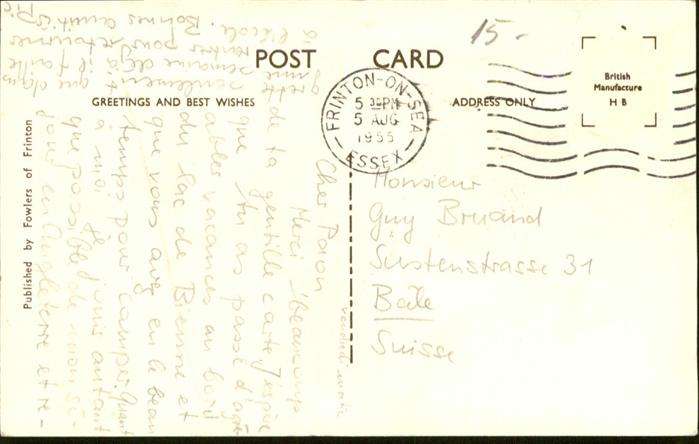 POST CARD
15.-
GREETINGS AND BEST WISHES
ADDRESS ONLY
British
Manufacture
H B
FRINTON-ON-SEA
5 30PM
5 AUG
1955
ESSEX
Published by Fowlers of Frinton
vendredi
Cher Paion
Merci beaucoup
de ta gentille carte J'espère
que tu as passé d'agré-
ables vacances au bord
du lac de Bienne et
que vous avez eu le beau
temps pour camper. Quant
à moi je jouis autant
que possible de mon sé-
jour en Angleterre et re-
grette
seulement que dans
une semaine déjà il faille
rentrer pour retourner
à l'école. Bonnes amitiés
Pic
Monsieur
Guy Bruand
Sustenstrasse 31
Bâle
Suisse